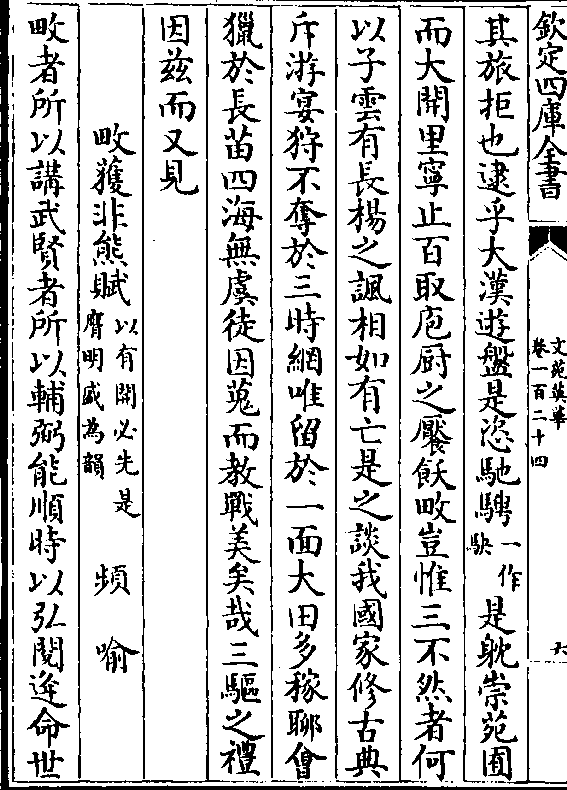 欽定四庫全書
文苑英華
卷一百二十四
六
其旅拒也逮乎大漢遊盤是恣馳騁一作駃是躭崇苑囿
而大開里寧止百取庖厨之饜飫畋豈惟三不然者何
以子雲有長楊之諷相如有亡是之談我國家修古典
斥游宴狩不奪於三時網唯留於一面大田多稼聊會
獵於長苗四海無虞徒因蒐而教戰美矣哉三驅之禮
因兹而又見
畋獲非熊賦以有開必先是膺明盛為韻 頻喻
畋者所以講武賢者所以輔弼能順時以弘閱迮命世